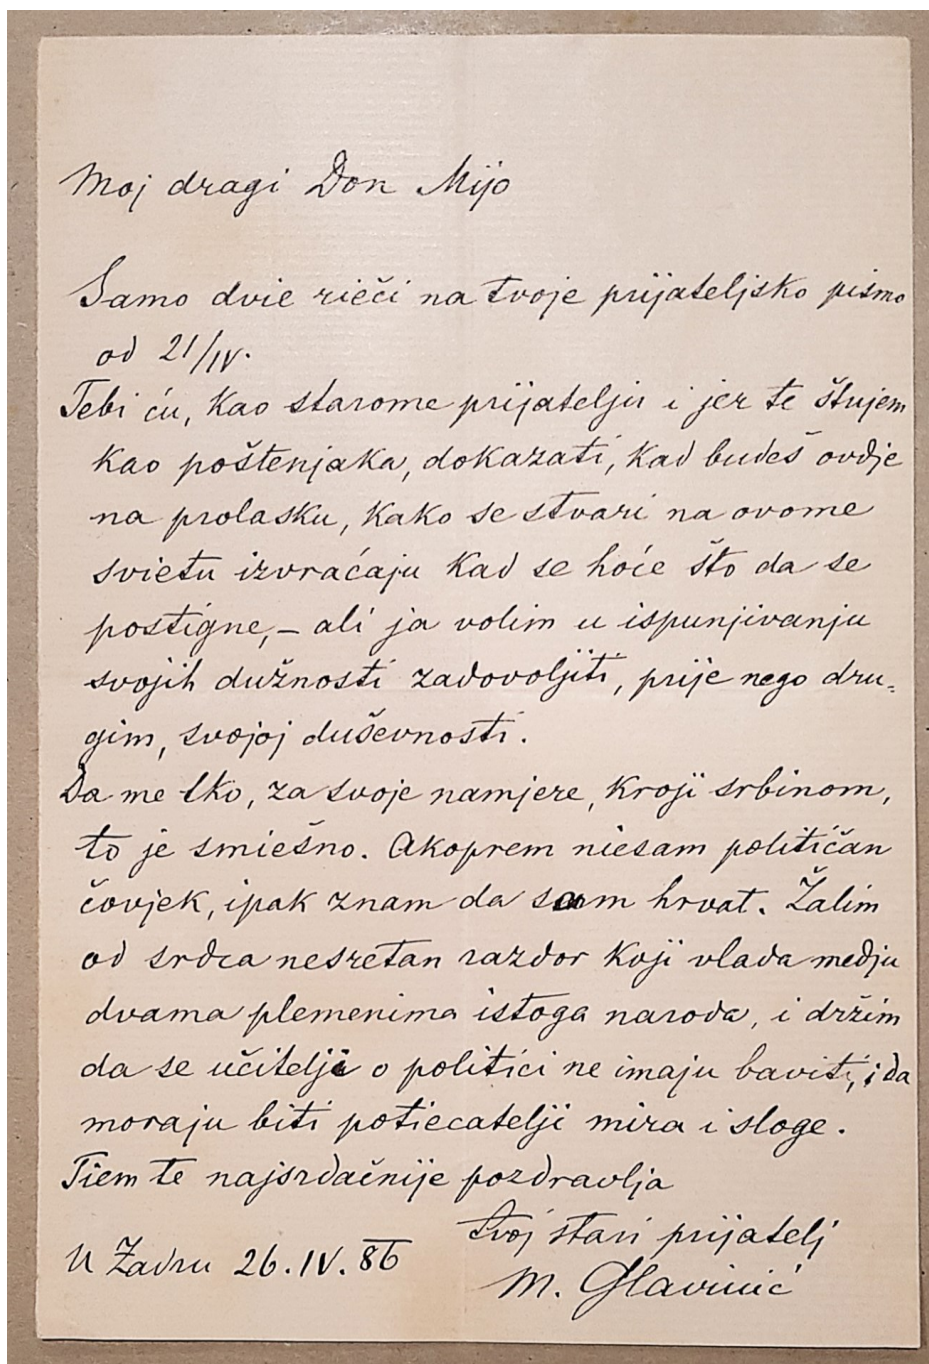 Moj dragi Don Mijo
Samo dvie rieči na tvoje prijateljsko pismo
od 21/IV.
Tebi ću, kao starome prijatelju i jer te štujem
kao poštenjaka, dokazati, kad budeš ovdje
na prolasku, kako se stvari na ovome
svietu izvraćaju kad se hoće što da se
postigne, – ali ja volim u ispunjivanju
svojih dužnosti zadovoljiti, prije nego dru-
gim, svojoj duševnosti.
Da me tko, za svoje namjere, kroji srbinom,
to je smiešno. Akoprem niesam političan
čovjek, ipak znam da sam hrvat. Žalim
od srdca nesretan razdor koji vlada medju
dvama plemenima istoga naroda, i držim
da se učitelji o politici ne imaju baviti, i da
moraju biti potiecatelji mira i sloge.
Tiem te najsrdačnije pozdravlja
tvoj stari prijatelj
U Zadru 26.IV.86
M. Glavinić